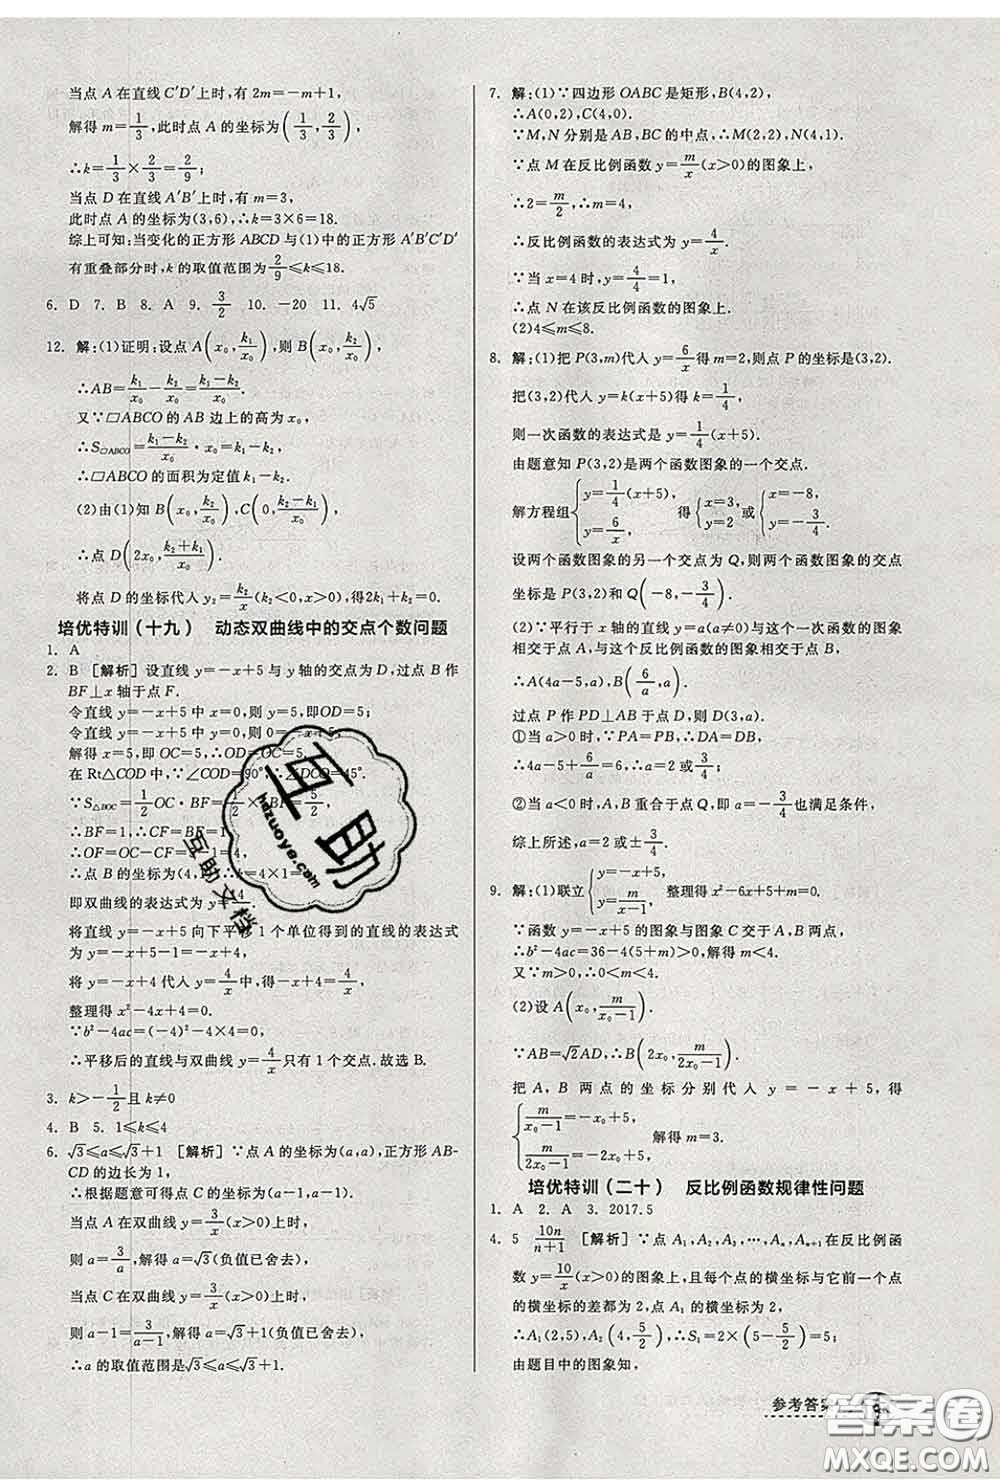 当点 A 在直线 C′D′上时,有 2m=-m+1,
解得 m=1/3,此时点 A 的坐标为(1/3,2/3),
∴k=1/3×2/3=2/9;
当点 D 在直线 A′B′上时,有 m=3,
此时点 A 的坐标为(3,6),∴k=3×6=18.
综上可知:当变化的正方形 ABCD 与(1)中的正方形 A′B′C′D′
有重叠部分时,k 的取值范围为 2/9≤k≤18.
6. D 7. B 8. A 9. 3/2 10. -20 11. 4√5
12. 解:(1)证明:设点 A(x₀,k₁/x₀),则 B(x₀,k₂/x₀),
∴AB=k₁/x₀-k₂/x₀=(k₁-k₂)/x₀.
又∵□ABCO 的 AB 边上的高为 x₀,
∴S□ABCO=(k₁-k₂)/x₀·x₀=k₁-k₂.
∴□ABCO 的面积为定值 k₁-k₂.
(2)由(1)知 B(x₀,k₂/x₀),C(0,(k₂-k₁)/x₀),
∴点 D(2x₀,(k₂+k₁)/x₀).
将点 D 的坐标代入 y₂=k₂/x(k₂<0,x>0),得2k₁+k₂=0.
培优特训(十九) 动态双曲线中的交点个数问题
1. A
2. B [解析] 设直线 y=-x+5 与 y 轴的交点为 D,过点 B 作
BF⊥x 轴于点 F.
令直线 y=-x+5 中 x=0,则 y=5,即OD=5;
令直线 y=-x+5 中 y=0,则 0=-x+5,
解得 x=5,即 OC=5,∴OD=OC=5.
在 Rt△COD 中,∵∠COD=90°,∴∠DCO=45°.
∵S△BOC=1/2OC·BF=1/2×5×BF=5/2,
∴BF=1,∴CF=BF=1,
∴OF=OC-CF=5-1=4,
∴点 B 的坐标为(4,1),∴k=4×1=4,
即双曲线的表达式为 y=4/x.
将直线 y=-x+5 向下平移 1 个单位得到的直线的表达式
为 y=-x+5-1=-x+4,
将 y=-x+4 代入 y=4/x 中,得-x+4=4/x,
整理得 x²-4x+4=0.
∵b²-4ac=(-4)²-4×4=0,
∴平移后的直线与双曲线 y=4/x 只有 1 个交点.故选 B.
3. k>-1/2且 k≠0
4. B 5. 1≤k≤4
6. √3≤a≤√3+1 [解析] ∵点 A 的坐标为(a,a),正方形 AB-
CD 的边长为 1,
∴根据题意可得点 C 的坐标为(a-1,a-1),
当点 A 在双曲线 y=3/x(x>0)上时,
则 a=3/a,解得 a=√3(负值已舍去),
当点 C 在双曲线 y=3/x(x>0)上时,
则 a-1=3/(a-1),解得 a=√3+1(负值已舍去),
∴a 的取值范围是√3≤a≤√3+1.
7. 解:(1)∵四边形 OABC 是矩形,B(4,2),
∴A(0,2),C(4,0).
∵M,N 分别是 AB,BC 的中点,∴M(2,2),N(4,1).
∵点 M 在反比例函数 y=m/x(x>0)的图象上,
∴2=m/2,∴m=4,
∴反比例函数的表达式为 y=4/x.
∵当 x=4 时,y=4/4=1,
∴点 N 在该反比例函数的图象上.
(2)4≤m≤8.
8. 解:(1)把 P(3,m)代入 y=6/x得 m=2,则点 P 的坐标是(3,2).
把(3,2)代入 y=k(x+5)得 k=1/4,
则一次函数的表达式是 y=1/4(x+5).
由题意知 P(3,2)是两个函数图象的一个交点.
解方程组{y=1/4(x+5), y=6/x 得{x=3, y=2或{x=-8, y=-3/4.
设两个函数图象的另一个交点为 Q,则两个函数图象的交点
坐标是 P(3,2),Q(-8,-3/4).
(2)∵平行于 x 轴的直线 y=a(a≠0)与这两个函数图象交于点A,B,
∴A(4a-5,a),B(6/a,a).
过点 P 作 PD⊥AB 于点 D,则 D(3,a).
①当 a>0 时,∵PA=PB,∴DA=DB,
∴4a-5+6/a=6,
②当 a<0 时,A,B 重合于点 Q,即 a=-3/4也满足条件,
综上所述,a=2 或 a=±3/4.
9. 解:(1)联立{y=-x+5, y=m/(x-1) 整理得 x²-6x+5+m=0,
∵函数 y=-x+5 的图象与图象 C 交于 A,B 两点,
∴b²-4ac=36-4(5+m)>0,解得 m<4.
又∵m>0,∴0<m<4.
(2)设 A(x₀,m/(x₀-1)),
∵AB=√2AD,∴B(2x₀,m/(2x₀-1)).
把 A,B 两点的坐标分别代入 y=-x+5,得
{m/(x₀-1)=-x₀+5, m/(2x₀-1)=-2x₀+5, 解得 m=3.
培优特训(二十) 反比例函数规律性问题
1. A 2. A 3. 2017.5
4. 5 10n/(n+1) [解析] ∵点 A₁,A₂,A₃,…,Aₙ,Aₙ₊₁在反比例函
数 y=10/x(x>0)的图象上,且每个点的横坐标与它前一个点
的横坐标的差都为 2,点 A₁ 的横坐标为 2,
∴A₁(2,5),A₂(4,5/2),∴S₁=2×(5-5/2)=5;
由题目中的图象知,
参考答案
互助
hdzuoye.com
互助文档
答案圈
MXQE.COM